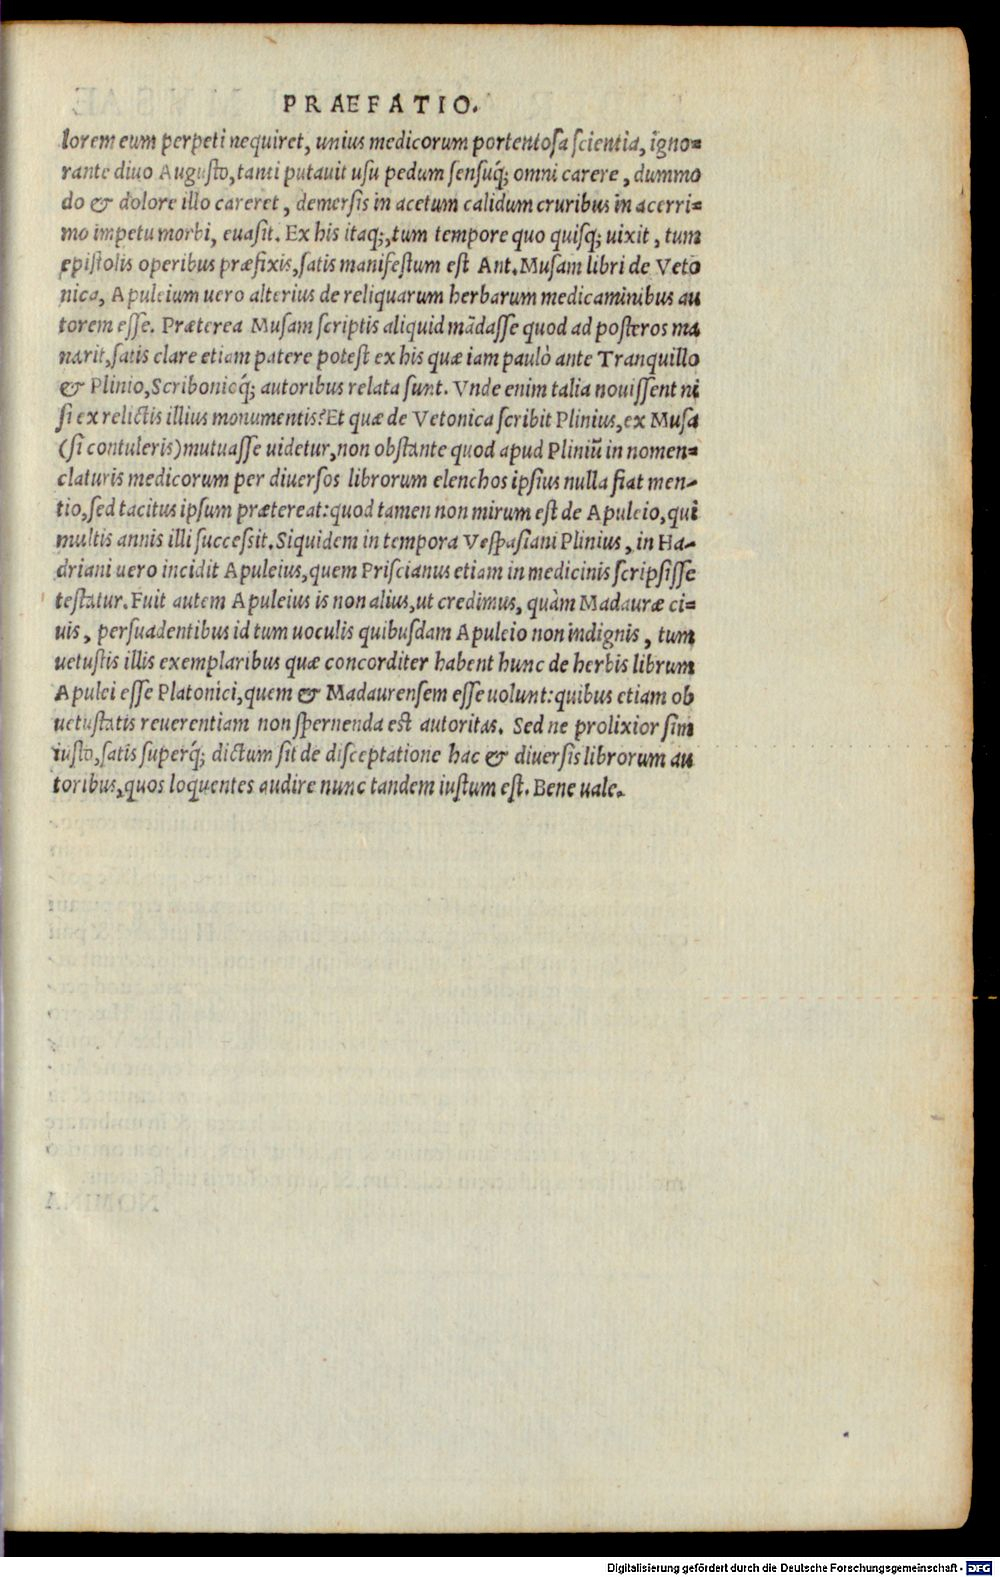 PRAEFATIO.
lorem eum perpeti nequiret, unius medicorum portentosa scientia, igno=
rante diuo Augusto, tanti putauit usu pedum sensuq́; omni carere, dummo
do & dolore illo careret, demersis in acetum calidum cruribus in acerri=
mo impetu morbi, euasit. Ex his itaq;, tum tempore quo quisq; uixit, tum
epistolis operibus præfixis, satis manifestum est Ant. Musam libri de Veto
nica, Apuleium uero alterius de reliquarum herbarum medicaminibus au
torem esse. Præterea Musam scriptis aliquid mãdasse quod ad posteros ma
narit, satis clare etiam patere potest ex his quæ iam paulò ante Tranquillo
& Plinio, Scribonioq́; autoribus relata sunt. Vnde enim talia nouissent ni
si ex relictis illius monumentis? Et quæ de Vetonica scribit Plinius, ex Musa
(si contuleris) mutuasse uidetur, non obstante quod apud Pliniũ in nomen=
claturis medicorum per diuersos librorum elenchos ipsius nulla fiat men-
tio, sed tacitus ipsum prætereat: quod tamen non mirum est de Apuleio, qui
multis annis illi successit. Siquidem in tempora Vespasiani Plinius, in Ha-
driani uero incidit Apuleius, quem Priscianus etiam in medicinis scripsisse
testatur. Fuit autem Apuleius is non alius, ut credimus, quàm Madauræ ci=
uis, persuadentibus id tum uoculis quibusdam Apuleio non indignis, tum
uetustis illis exemplaribus quæ concorditer habent hunc de herbis librum
Apulei esse Platonici, quem & Madaurensem esse uolunt: quibus etiam ob
uetustatis reuerentiam non spernenda est autoritas. Sed ne prolixior sim
iusto, satis superq́; dictum sit de disceptatione hac & diuersis librorum au
toribus, quos loquentes audire nunc tandem iustum est. Bene uale.
Digitalisierung gefördert durch die Deutsche Forschungsgemeinschaft - DFG